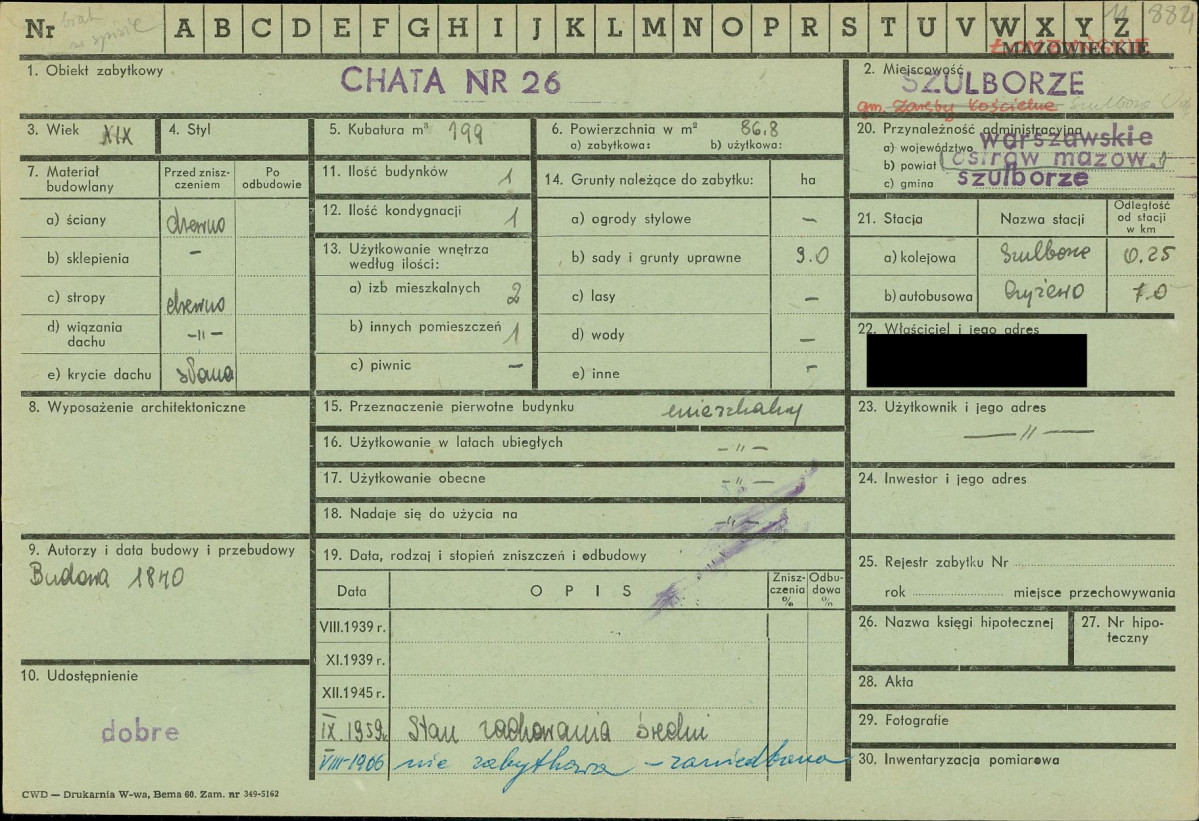 Nr brak w spisie A B C D E F G H I J K L M N O P R S T U V W X Y Z 11 8824
MAZOWIECKIE
1. Obiekt zabytkowy CHATA NR 26
2. Miejscowość SZULBORZE
gm. Zaręby Kościelne Szulborze
3. Wiek XIX
4. Styl
5. Kubatura m³ 199
6. Powierzchnia w m² 86,8
a) zabytkowa: b) użytkowa:
7. Materiał budowlany
Przed zniszczeniem
Po odbudowie
a) ściany drewno
b) sklepienia –
c) stropy drewno
d) wiązania dachu –"–
e) krycie dachu słoma
8. Wyposażenie architektoniczne
9. Autorzy i data budowy i przebudowy
Budowa 1840
10. Udostępnienie
dobre
11. Ilość budynków 1
12. Ilość kondygnacji 1
13. Użytkowanie wnętrza według ilości:
a) izb mieszkalnych 2
b) innych pomieszczeń 1
c) piwnic –
14. Grunty należące do zabytku: ha
a) ogrody stylowe –
b) sady i grunty uprawne 9.0
c) lasy –
d) wody –
e) inne –
15. Przeznaczenie pierwotne budynku mieszkalny
16. Użytkowanie w latach ubiegłych –"–
17. Użytkowanie obecne –"–
18. Nadaje się do użycia na –"–
19. Data, rodzaj i stopień zniszczeń i odbudowy
Data OPIS Zniszczenia % Odbudowa %
VIII.1939 r.
XI.1939 r.
XII.1945 r.
IX.1959r. Stan zachowania średni
VIII-1966 nie zabytkowa – zaniedbana
20. Przynależność administracyjna
a) województwo warszawskie
b) powiat ostrów mazow.
c) gmina szulborze
21. Stacja Nazwa stacji Odległość od stacji w km
a) kolejowa Szulborze 0.25
b) autobusowa Czyżewo 7.0
22. Właściciel i jego adres
23. Użytkownik i jego adres
–"–
24. Inwestor i jego adres
25. Rejestr zabytku Nr
rok miejsce przechowywania
26. Nazwa księgi hipotecznej
27. Nr hipoteczny
28. Akta
29. Fotografie
30. Inwentaryzacja pomiarowa
CWD — Drukarnia W-wa, Bema 60. Zam. nr 349-5162